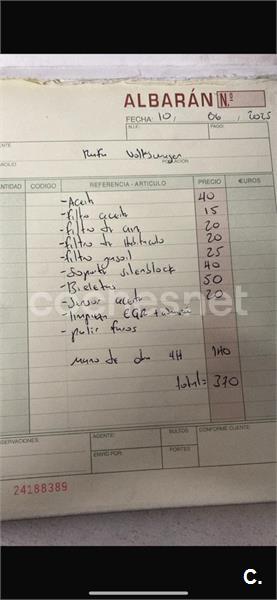 ALBARÁN N.º
FECHA: 10 / 06 / 2025
N.I.F.: PAGO:
POBLACIÓN
CANTIDAD CODIGO REFERENCIA - ARTICULO PRECIO €UROS
- Aceite 40
- filtro aceite 15
- filtro de aire 20
- filtro de habitaculo 20
- filtro gasoil 25
- Soporte silenblock 40
- Bieletas 50
- Sensor aceite 20
- limpieza EGR +
- pulir faros
mano de obra 4H 140
total = 370
coches.net
OBSERVACIONES: AGENTE: BULTOS CONFORME CLIENTE:
ENVIO POR: PORTES
24188389
C.